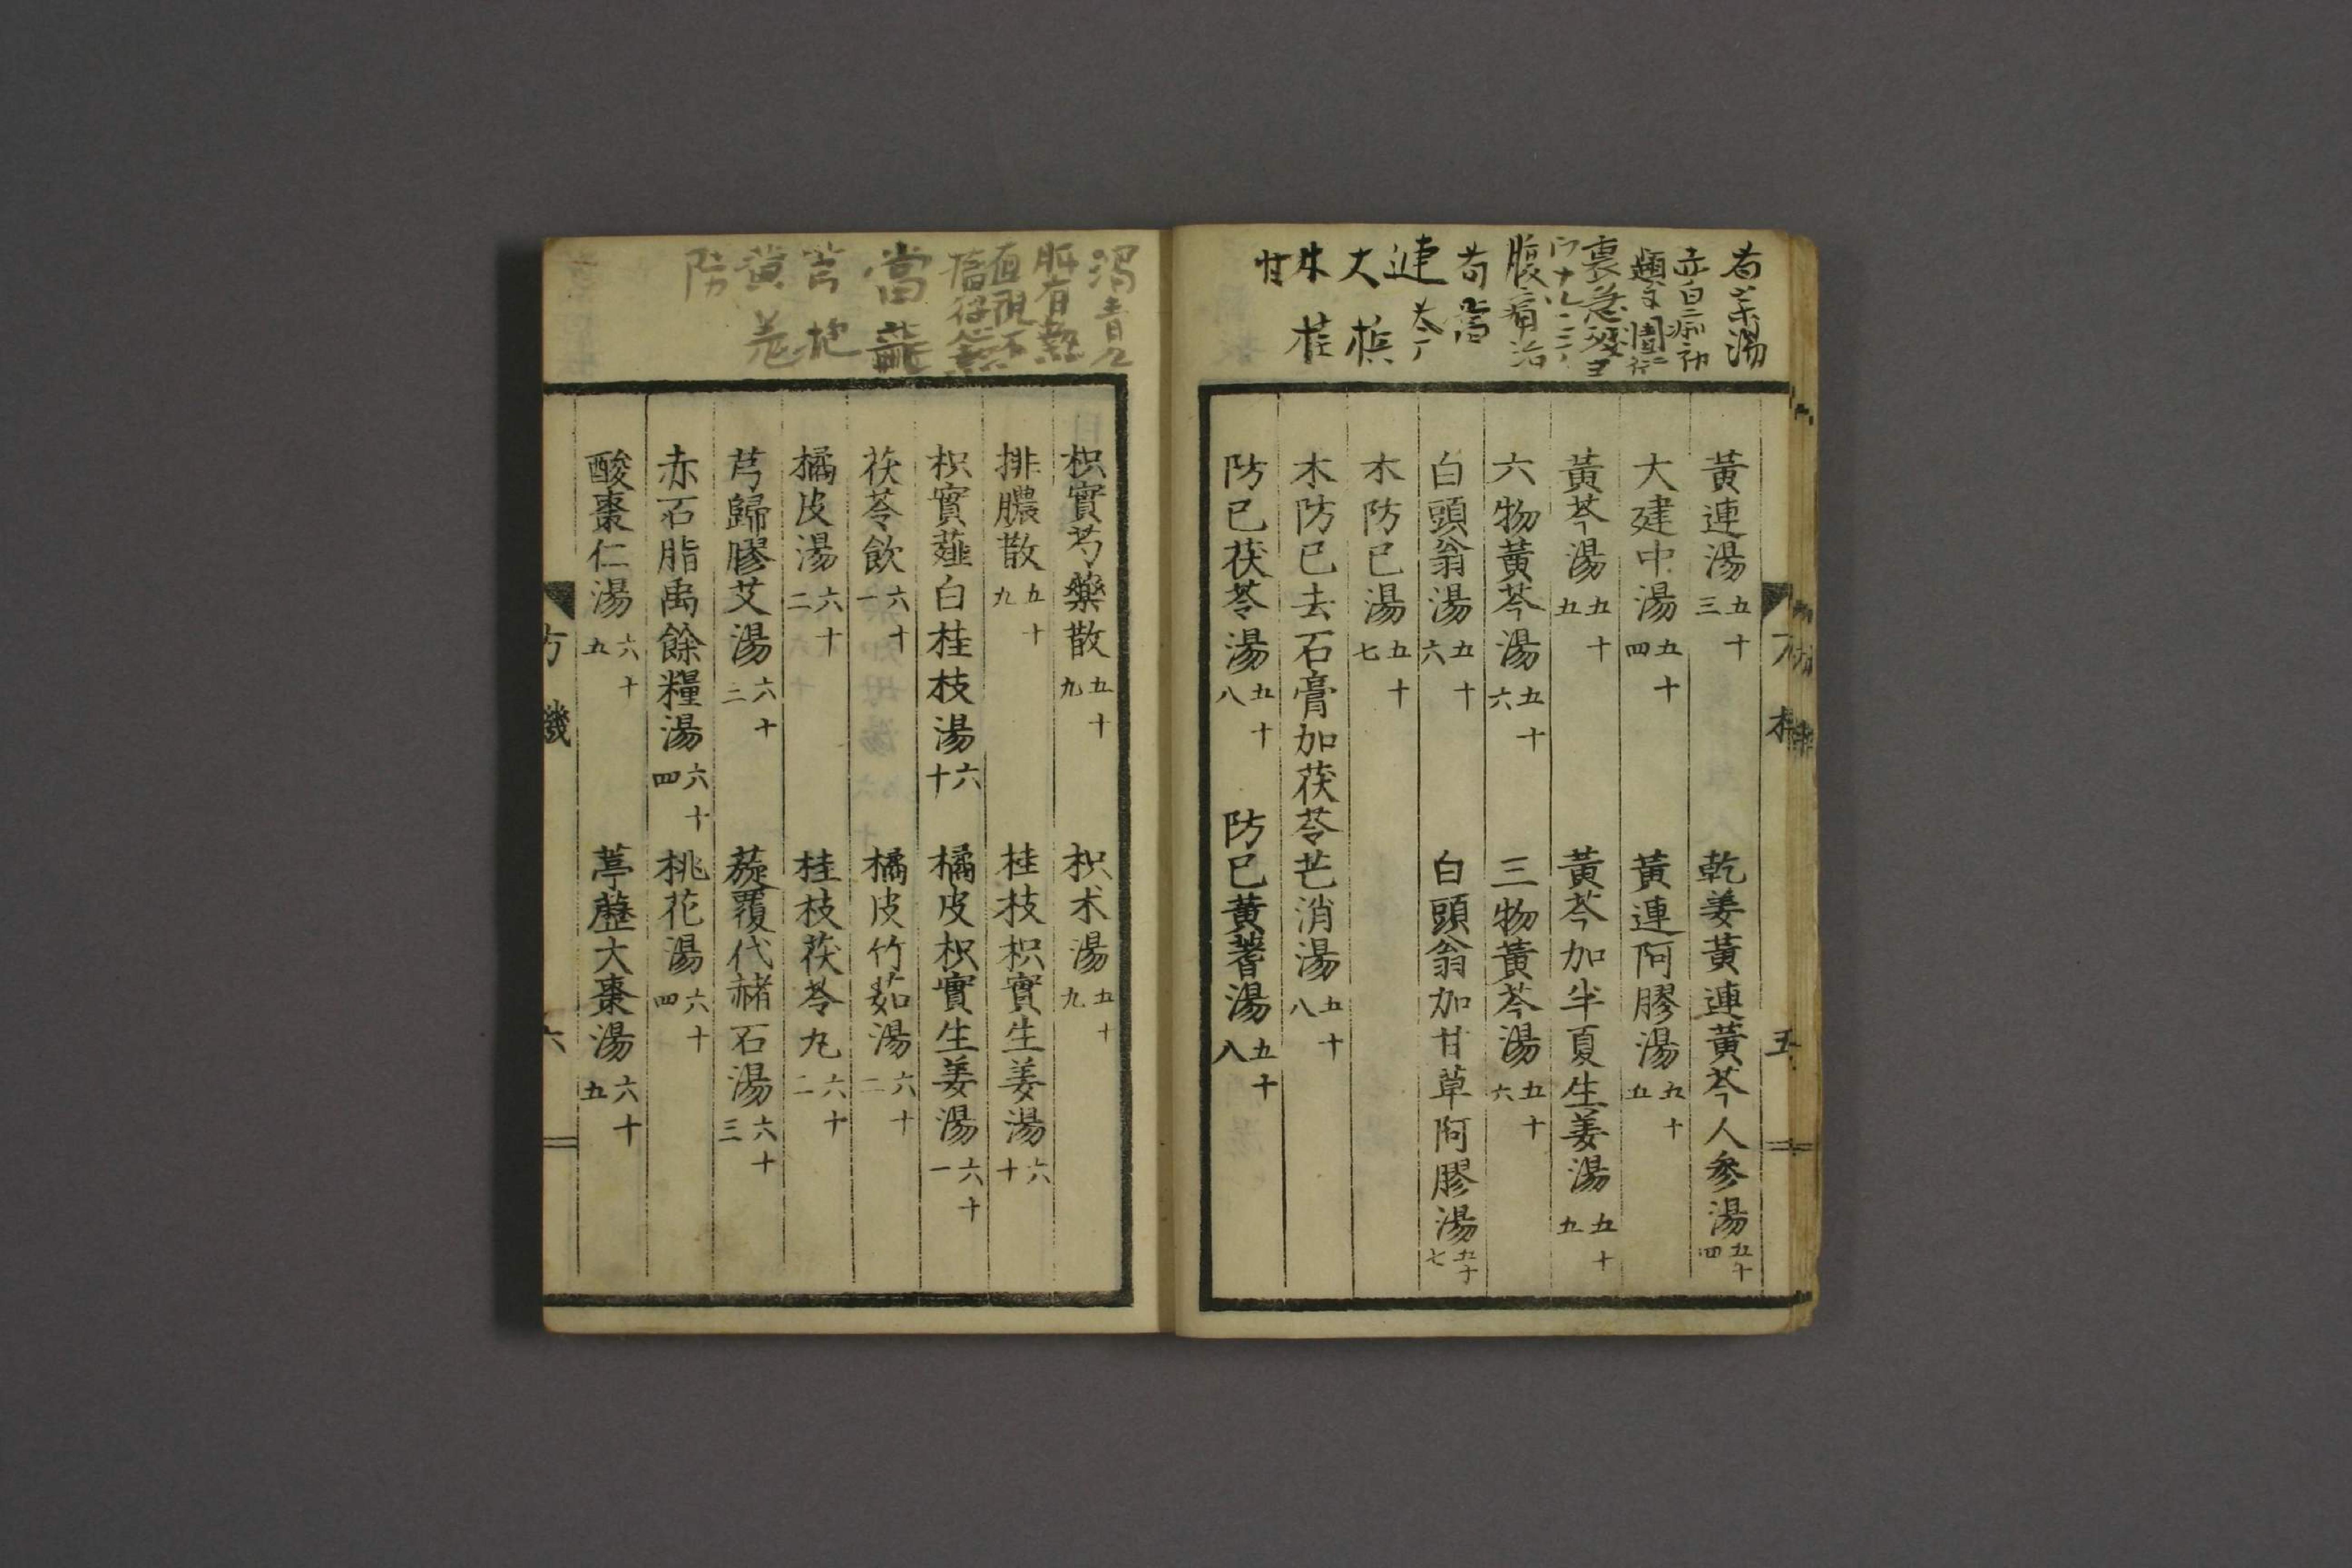 芍薬湯
赤白二痢初
裏急後重
腹痛治
芍 當
連 芩
大 梹
木 桂
甘
黃連湯 五十三 乾姜黃連黃芩人參湯 五十四
大建中湯 五十四 黃連阿膠湯 五十五
黃芩湯 五十五 黃芩加半夏生姜湯 五十九
六物黃芩湯 五十六 三物黃芩湯 五十六
白頭翁湯 五十六 白頭翁加甘草阿膠湯 五十七
木防已湯 五十七
木防已去石膏加茯苓芒消湯 五十八
防已茯苓湯 五十八 防已黃蓍湯 五十八
五
瀉青
肝有熱
直視
當 龍
芎 梔
黃 羗
防
枳實芍藥散 五十九 枳朮湯 五十九
排膿散 五十九 桂枝枳實生姜湯 六十
枳實薤白桂枝湯 六十 橘皮枳實生姜湯 六十一
茯苓飲 六十一 橘皮竹茹湯 六十二
橘皮湯 六十二 桂枝茯苓丸 六十二
芎歸膠艾湯 六十三 蔙覆代赭石湯 六十三
赤石脂禹餘糧湯 六十四 桃花湯 六十四
酸棗仁湯 六十五 葶藶大棗湯 六十五
方機 六